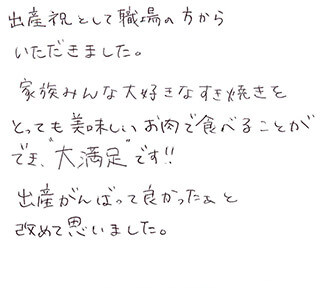 出産祝として職場の方から
いただきました。
家族みんな大好きなすき焼きを
とっても美味しいお肉で食べることが
でき、"大満足"です!!
出産がんばって良かったぁと
改めて思いました。